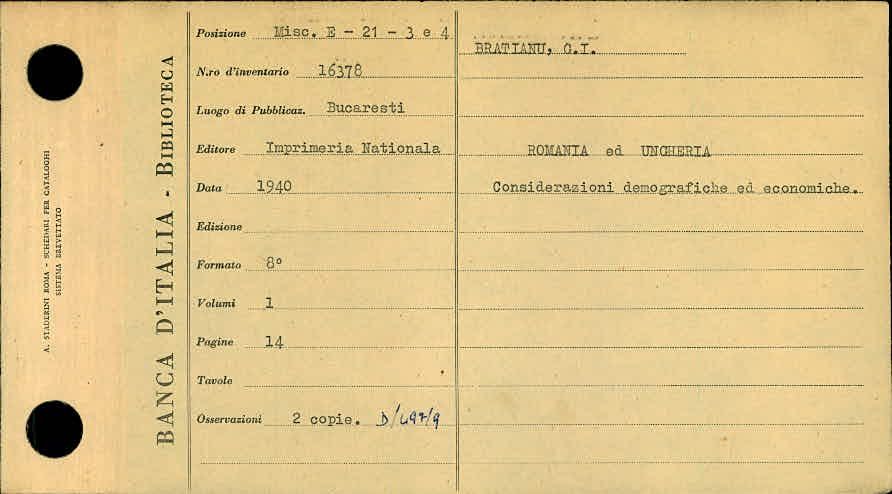 A. STADERINI ROMA - SCHEDARI PER CATALOGHI
SISTEMA BREVETTATO
BANCA D'ITALIA - BIBLIOTECA
Posizione Misc. E - 21 - 3 e 4
N.ro d'inventario 16378
Luogo di Pubblicaz. Bucaresti
Editore Imprimeria Nationala
Data 1940
Edizione
Formato 8°
Volumi 1
Pagine 14
Tavole
Osservazioni 2 copie. D/497/9
BRATIANU, G.I.
ROMANIA ed UNGHERIA
Considerazioni demografiche ed economiche.